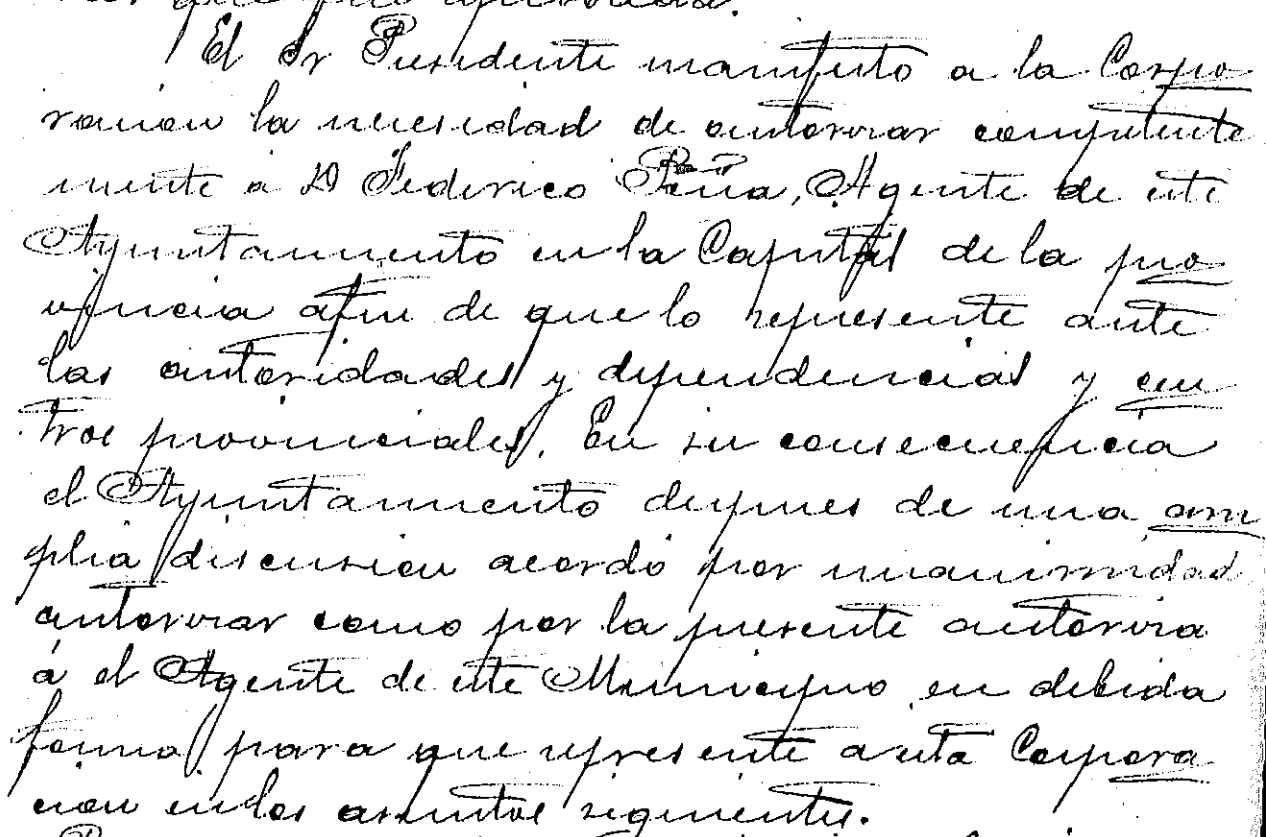 que fue aprobada.
El Sr Presidente manifesto a la Corpo
racion la necesidad de autorizar competente
mente a D Federico Peña, Agente de este
Ayuntamiento en la Capital de la pro
vincia afin de que lo represente ante
las autoridades y dependencias y cen
tros provinciales. En su consecuencia
el Ayuntamiento despues de una am
plia discusion acordó por unanimidad
autorizar como por la presente autoriza
á el Agente de este Municipio en debida
forma para que represente a esta Corpora
cion en los asuntos siguientes.